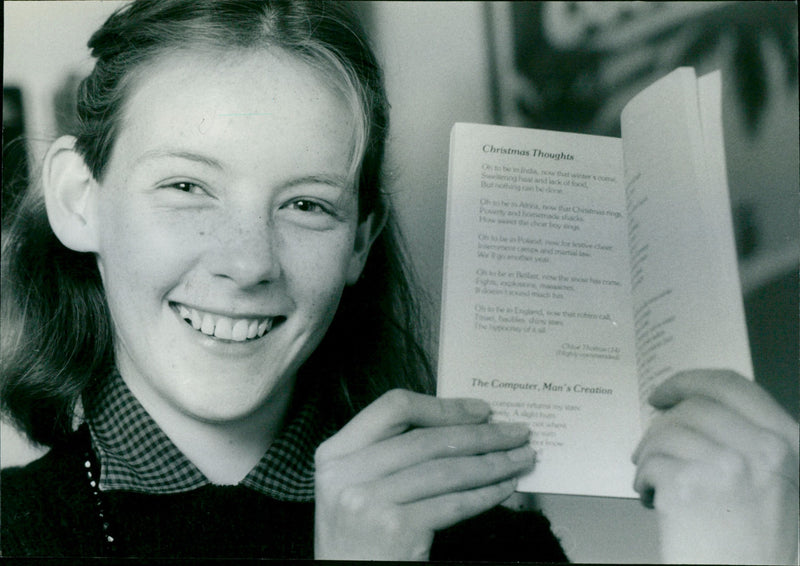 Christmas Thoughts
Oh to be in India, now that winter's come,
Sweltering heat and lack of food,
But nothing can be done.
Oh to be in Africa, now that Christmas rings,
Poverty and homemade shacks.
How sweet the choir boy sings.
Oh to be in Poland, now for festive cheer.
Internment camps and martial law.
We'll go another year.
Oh to be in Belfast, now the snow has come,
Fights, explosions, massacres,
It doesn't sound much fun.
Oh to be in England, now that robins call,
Tinsel, baubles, shiny stars
The hypocrisy of it all.
Chloe Thomas (14)
(Highly commended)
The Computer, Man's Creation
computer returns my stare,
A slight hum
not where
know